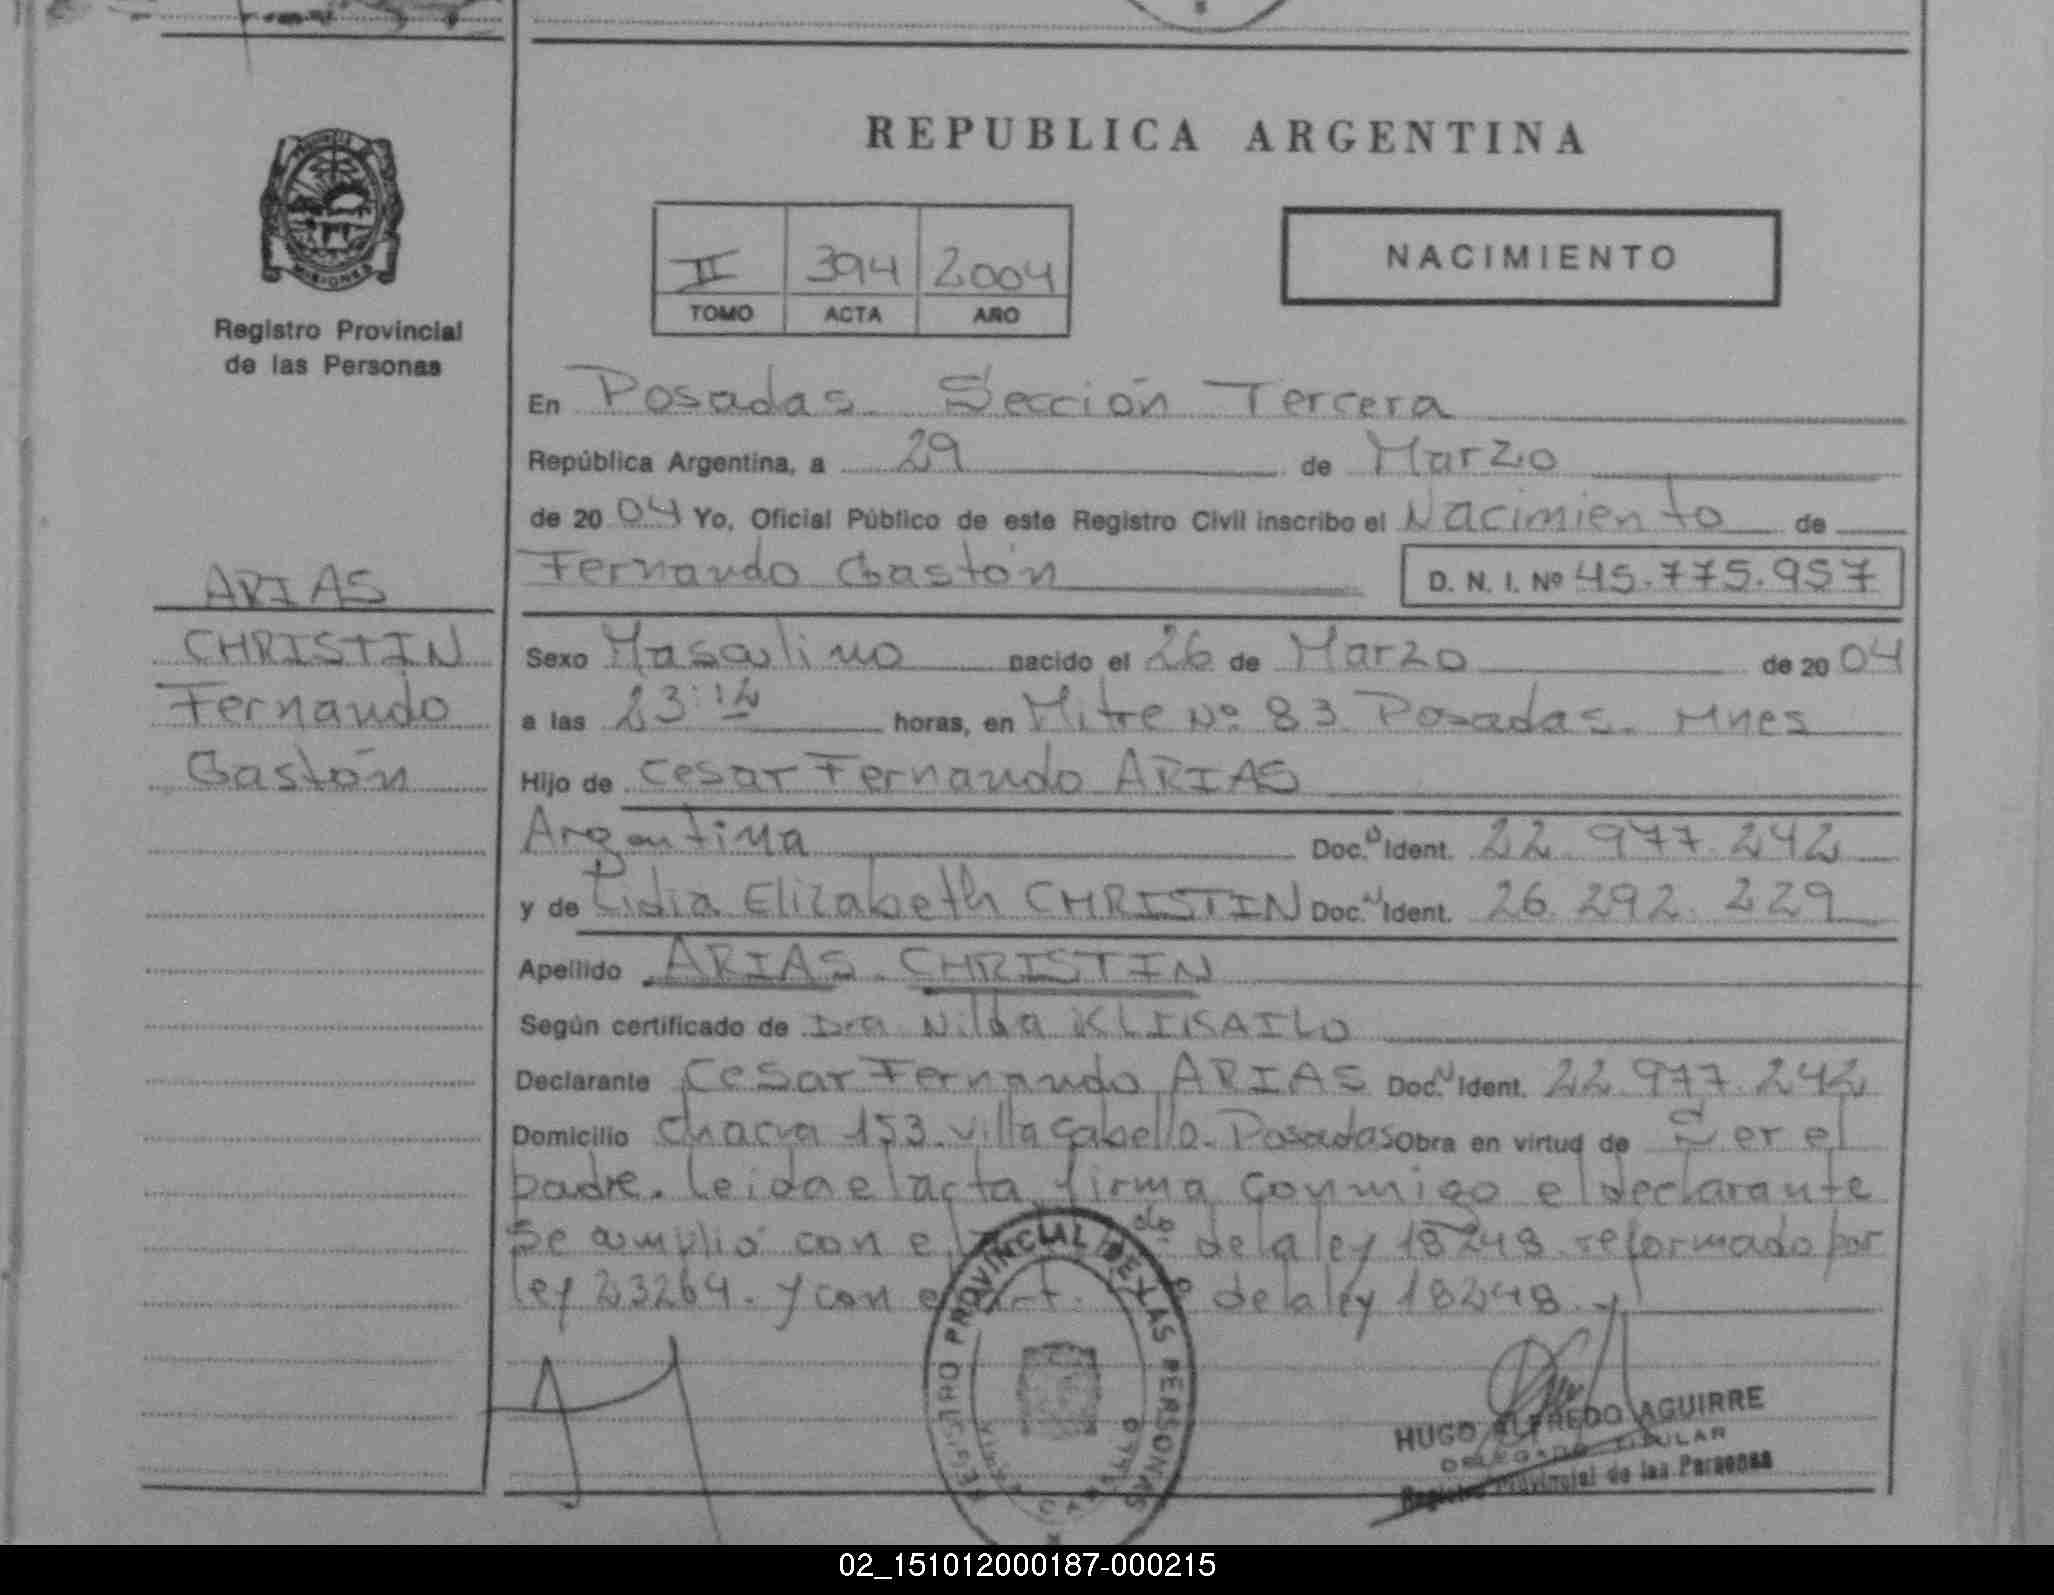 REPUBLICA ARGENTINA
NACIMIENTO
II 394 2004
TOMO ACTA AÑO
MISIONES
Registro Provincial
de las Personas
En Posadas. Sección Tercera
República Argentina, a 29 de Marzo
de 20 04 Yo, Oficial Público de este Registro Civil inscribo el Nacimiento de
Fernando Gastón D. N. I. Nº 45.775.957
ARIAS
CHRISTIN
Fernando
Gastón
Sexo Masculino nacido el 26 de Marzo de 20 04
a las 23:12 horas, en Mitre Nº 83 Posadas. Mnes
Hijo de Cesar Fernando ARIAS
Argentina Doc. Ident. 22.977.242
y de Lidia Elizabeth CHRISTIN Doc. Ident. 26.292.229
Apellido ARIAS CHRISTIN
Según certificado de Dra Nilda KLIKAILO
Declarante Cesar Fernando ARIAS Doc. Ident. 22.977.242
Domicilio Chacra 153. Villa Cabello. Posadas Obra en virtud de Ser el
padre. Leida el acta firma conmigo el declarante
Se cumplió con el de la ley 18248 reformado por
ley 23264. y con el art. de la ley 18248.
REGISTRO PROVINCIAL DE LAS PERSONAS
HUGO ALFREDO AGUIRRE
DELEGADO TITULAR
Registro Provincial de las Personas
02_151012000187-000215